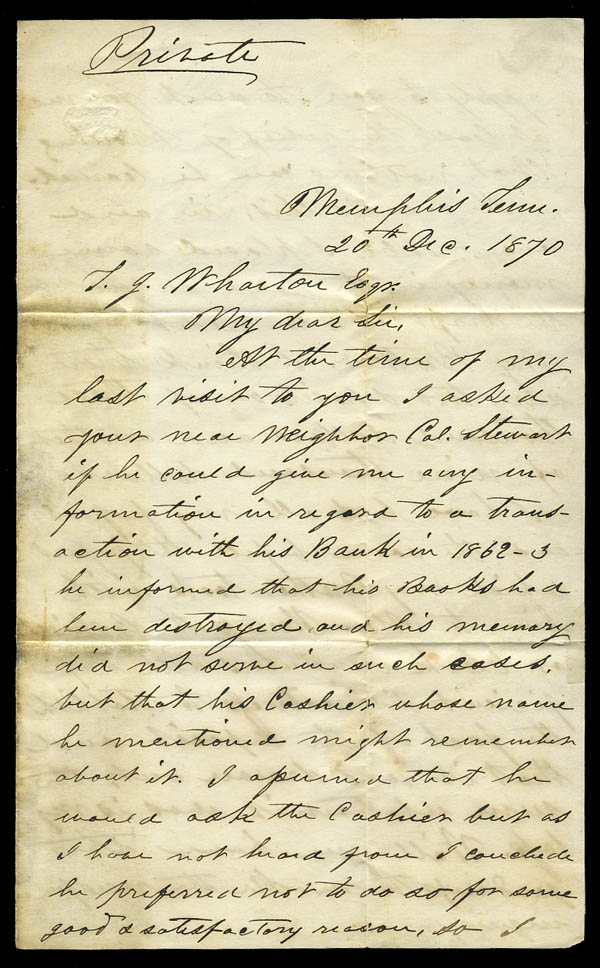 Private
Memphis Tenn.
20th Dec. 1870
T. J. Wharton Esqr.
My dear Sir,
At the time of my
last visit to you I asked
your near Neighbor Col. Stewart
if he could give me any in-
formation in regard to a trans-
action with his Bank in 1862-3
he informed that his Books had
been destroyed and his memory
did not serve in such cases.
but that his Cashier whose name
he mentioned might remember
about it. I assumed that he
would ask the Cashier but as
I have not heard from I conclude
he preferred not to do so for some
good & satisfactory reason, so I